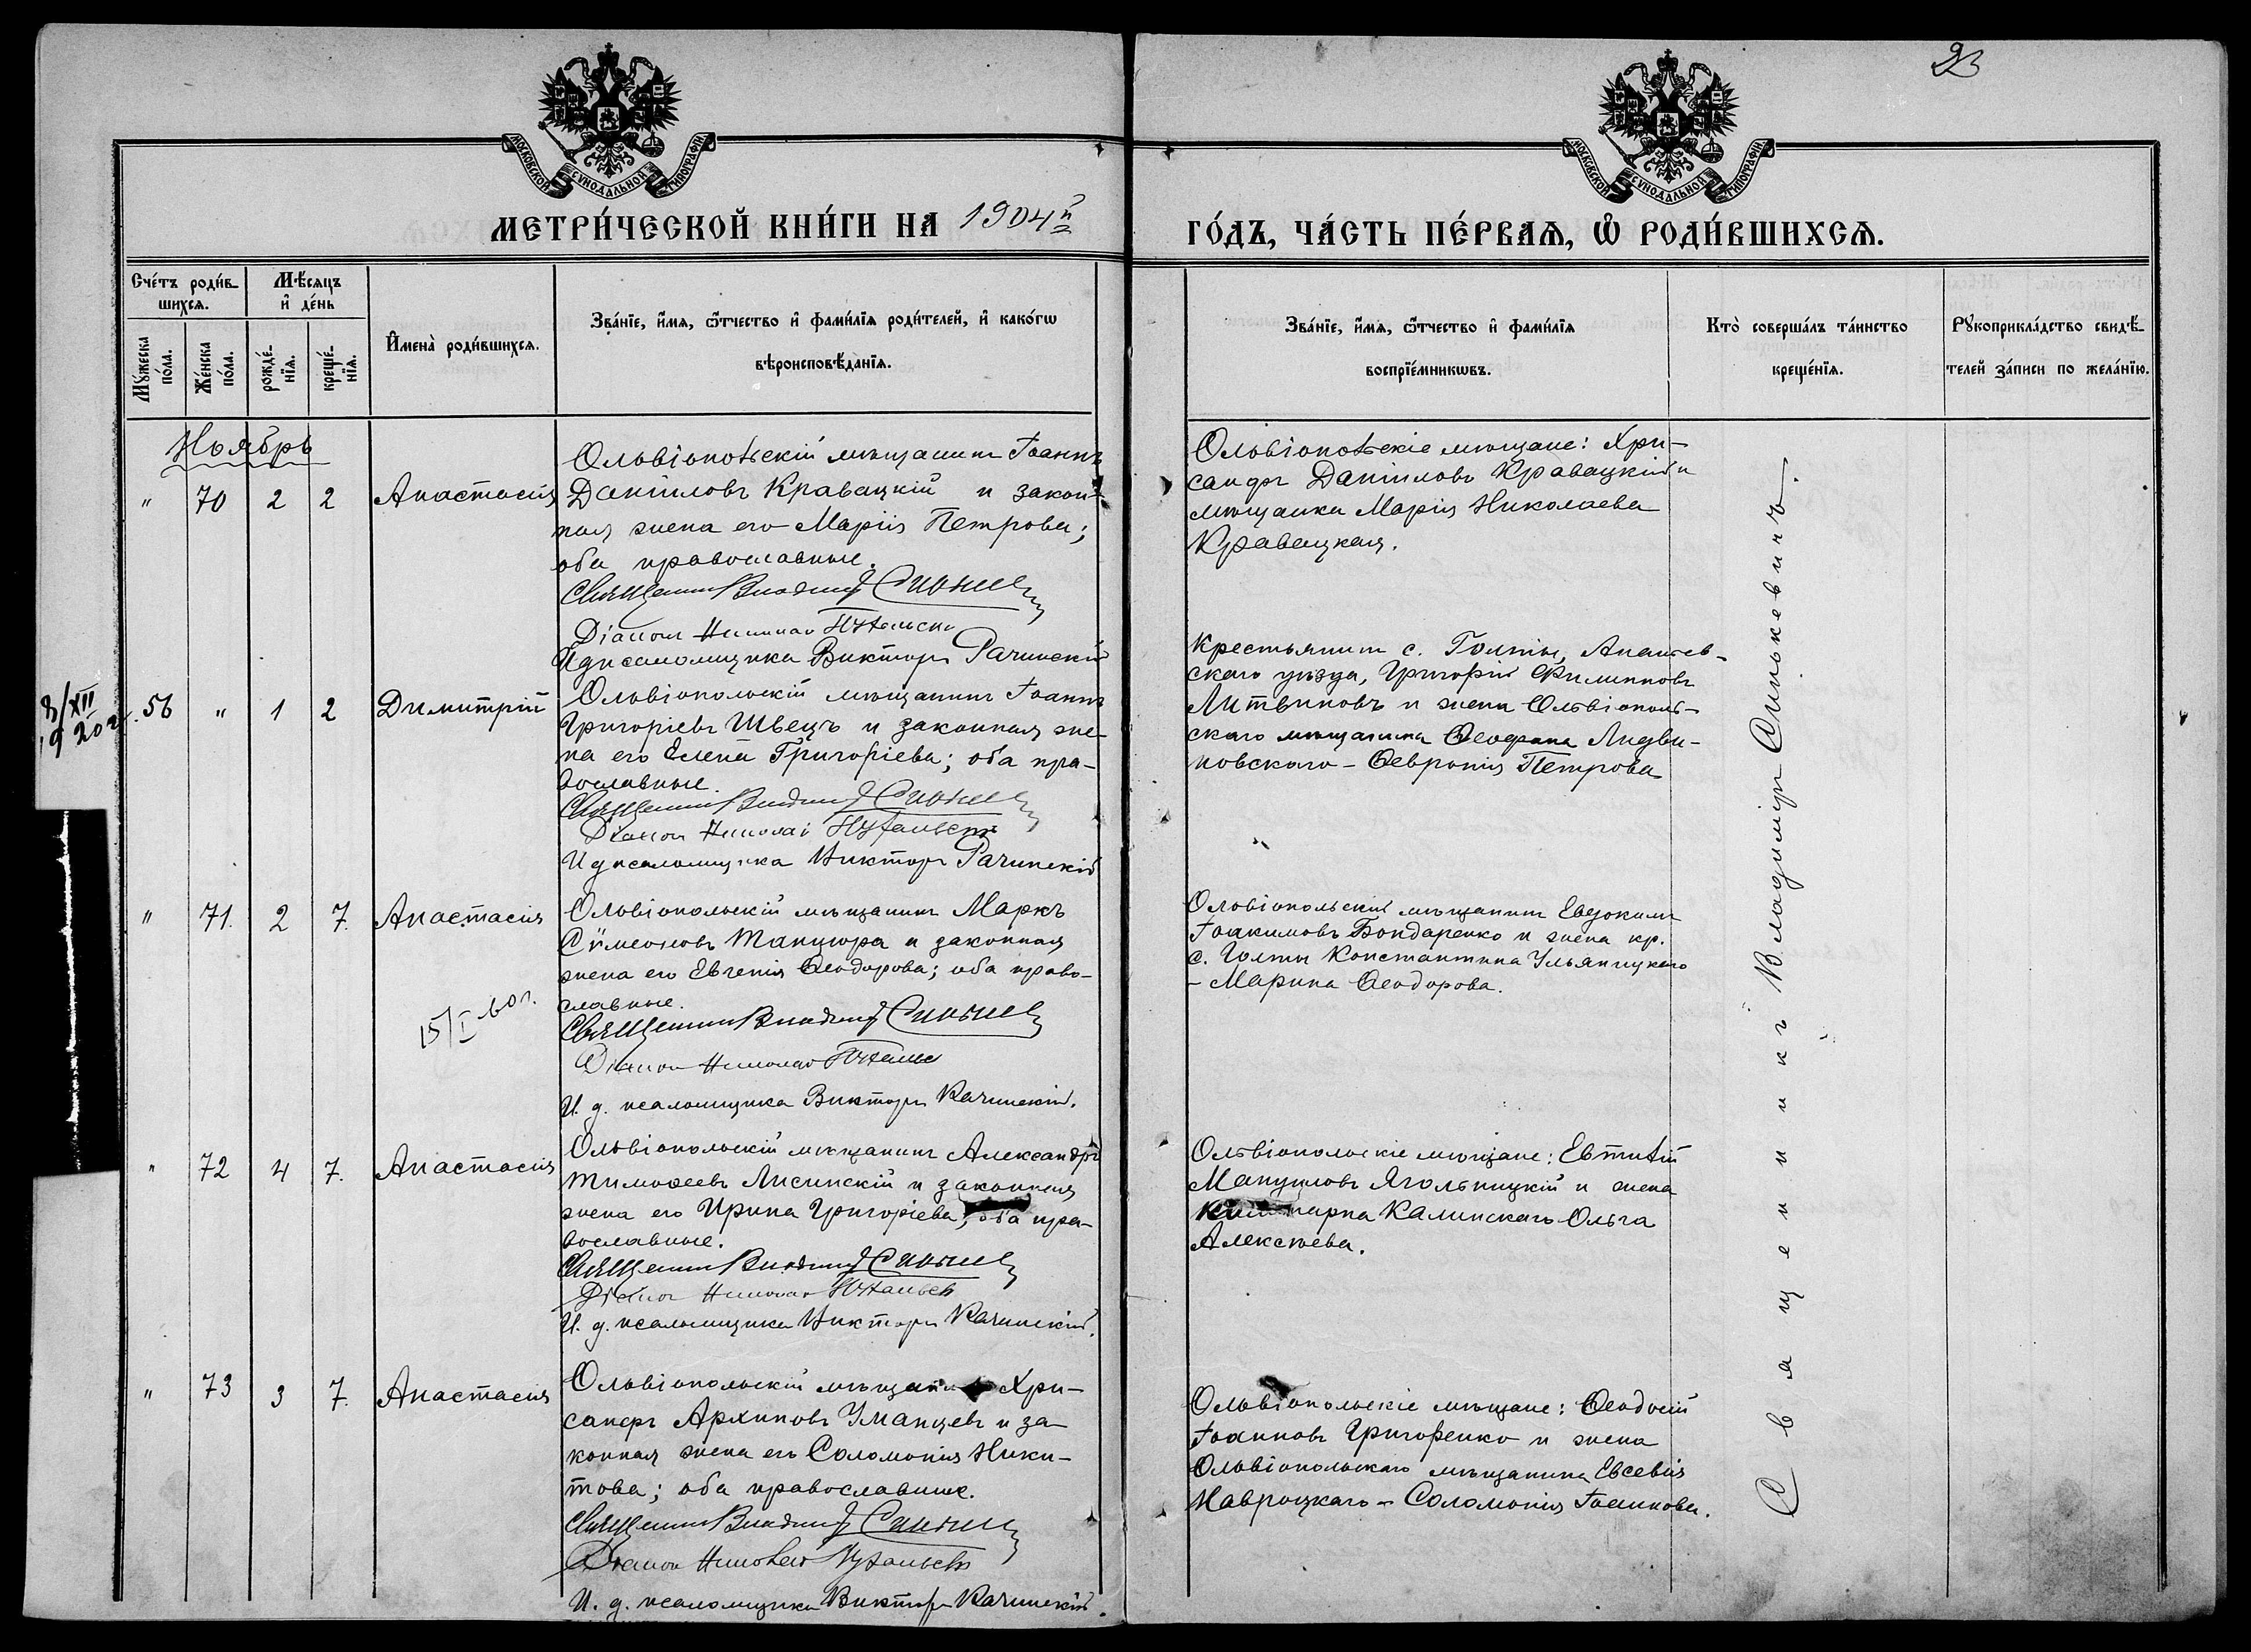 23
МОСКОВСКОЙ СУНОДАЛЬНОЙ ТИПОГРАФІИ
МОСКОВСКОЙ СУНОДАЛЬНОЙ ТИПОГРАФІИ
МЕТРИ́ЧЕСКОЙ КНИ́ГИ НА 1904й
ГО́ДЪ, ЧА́СТЬ ПЕ́РВАѦ, Ѡ҆ РОДИ́ВШИХСѦ.
Сче́тъ роди́в-
шихсѧ.
Мѣ́сѧцъ
и҆ де́нь
Му́жеска по́ла.
Же́нска по́ла.
рожде́-нїѧ.
креще́-нїѧ.
И҆мена̀ роди́вшихсѧ.
Зва́нїе, и҆́мѧ, ѻ҆́тчество и҆ фами́лїѧ роди́телей, и҆ како́гѡ
вѣроисповѣ́данїѧ.
Зва́нїе, и҆́мѧ, ѻ҆́тчество и҆ фами́лїѧ
воспрїе́мникѡвъ.
Кто̀ соверша́лъ та́инство
креще́нїѧ.
Рꙋкоприкла́дство свидѣ́-
телей за́писи по жела́нїю.
Ноябрь
" 70 2 2 Анастасія
Ольвіопольскій мѣщанинъ Іоаннъ
Даніиловъ Кравацкій и закон-
ная жена его Марія Петрова;
оба православные.
Священникъ Владимір Синькев
Діаконъ Николай
И д псаломщика Викторъ Рачинскій
Ольвіопольскіе мѣщане: Хри-
санфъ Даніиловъ Кравацкій и
мѣщанка Марія Николаева
Кравацкая.
8/XII
1920 г.
56 " 1 2 Димитрій
Ольвіопольскій мѣщанинъ Іоаннъ
Григоріевъ Швецъ и законная же-
на его Елена Григоріева; оба пра-
вославные.
Священникъ Владимір Синькев
Діаконъ Николай
И д псаломщика Викторъ Рачинскій
Крестьянинъ с. Голты, Ананьев-
скаго уѣзда, Григорій Филипповъ
Литвиновъ и жена Ольвіополь-
скаго мѣщанина Ѳеофана Лидви-
новскаго - Ѳевронія Петрова
" 71. 2 7. Анастасія
Ольвіопольскій мѣщанинъ Маркъ
Сѵмеоновъ Танцюра и законная
жена его Евгенія Ѳеодорова; оба право-
славные.
15/I 60 г.
Священникъ Владимір Синькев
Діаконъ Николай
И. д. псаломщика Викторъ Рачинскій.
Ольвіопольскій мѣщанинъ Евдокимъ
Іоакимовъ Бондаренко и жена кр.
с. Голты Константина Ульяницкаго
- Марина Ѳеодорова.
" 72 4 7. Анастасія
Ольвіопольскій мѣщанинъ Александръ
Тимоѳеевъ Лисинскій и законная
жена его Ирина Григоріева; оба пра-
вославные.
Священникъ Владимір Синькев
Діаконъ Николай
И. д. псаломщика Викторъ Рачинскій.
Ольвіопольскіе мѣщане: Евтихій
Мануиловъ Ягольницкій и жена
Калинскаго Ольга
Алексѣева.
" 73 3 7. Анастасія
Ольвіопольскій мѣщанинъ Хри-
санфъ Архиповъ Уманцевъ и за-
конная жена его Соломонія Ники-
това; оба православные.
Священникъ Владимір Синькев
Діаконъ Николай
И. д. псаломщика Викторъ Рачинскій.
Ольвіопольскіе мѣщане: Ѳеодосій
Іоанновъ Григоренко и жена
Ольвіопольскаго мѣщанина Евсевія
Навроцкаго - Соломонія Іоаннова.
Священникъ Владиміръ Синькевичъ.